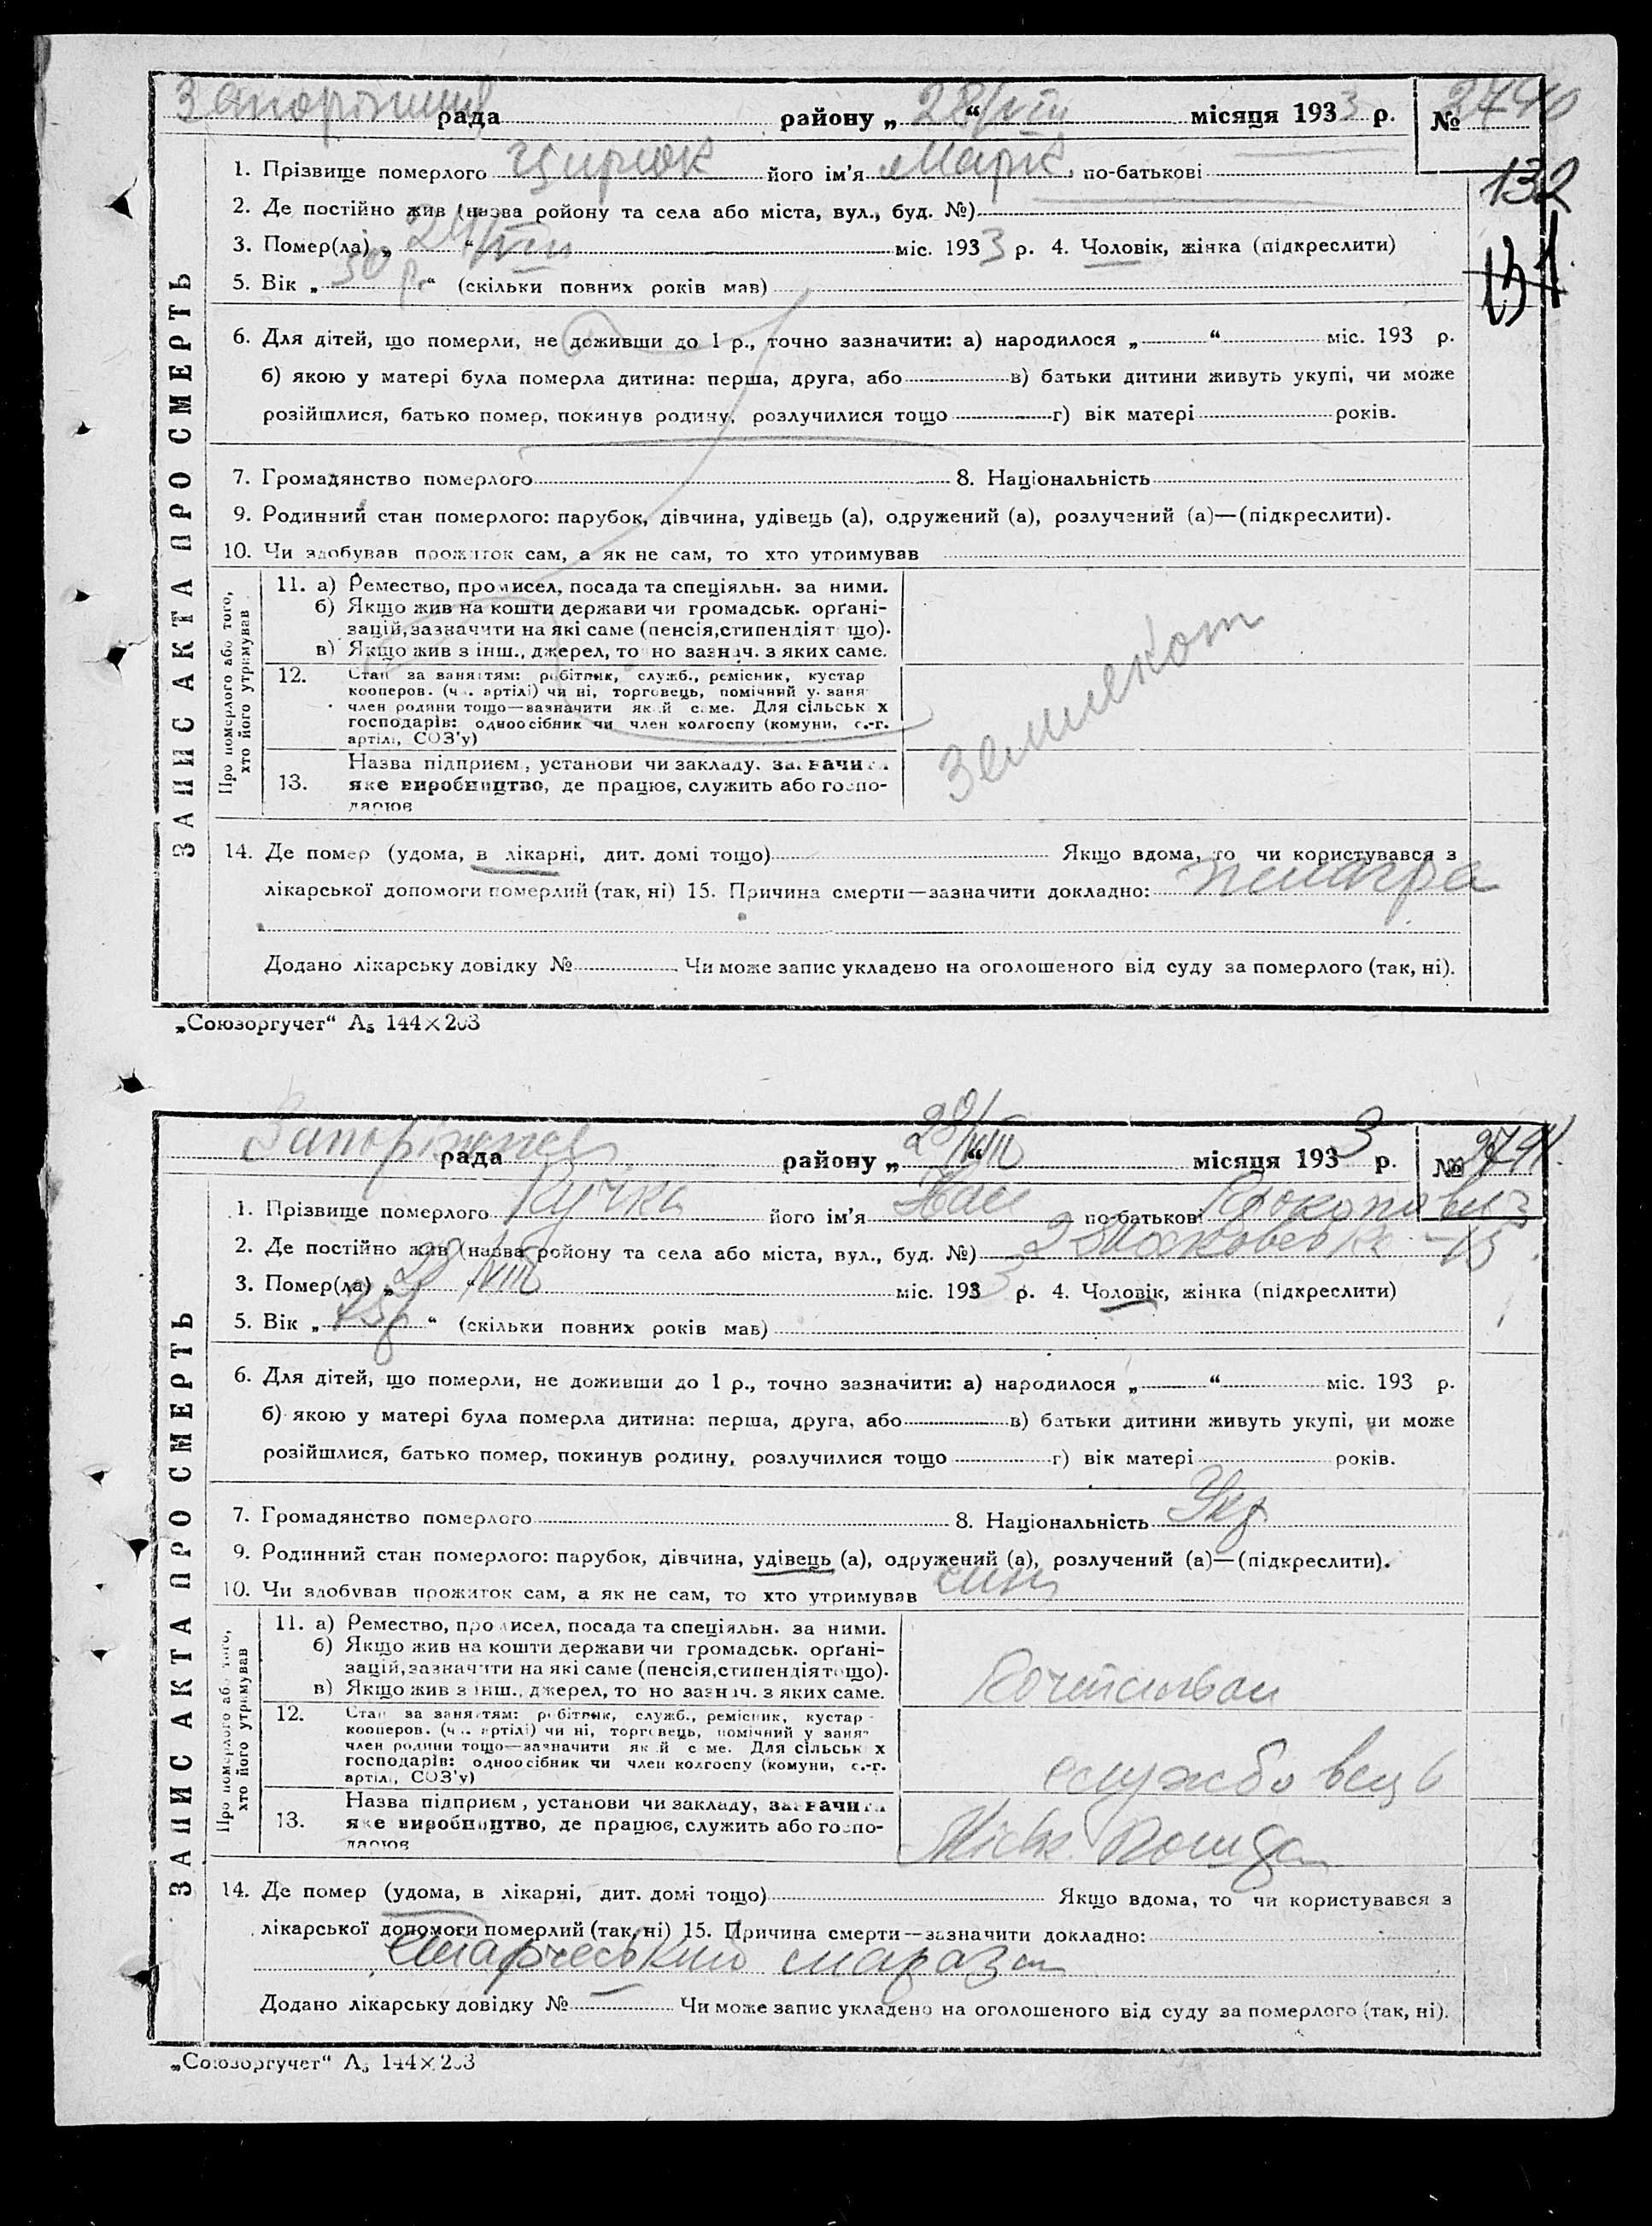 Запоріжжя рада района „28/VIII“ місяця 1933 р. № 2740
132
131
ЗАПИС АКТА ПРО СМЕРТЬ
1. Прізвище померлого Цирюк його ім'я Марк по-батькові
2. Де постійно жив (назва ройону та села або міста, вул., буд. №)
3. Помер(ла) „24/VIII“ міс. 1933 р. 4. Чоловік, жінка (підкреслити)
5. Вік „50 р.“ (скільки повних років мав)
6. Для дітей, що померли, не доживши до 1 р., точно зазначити: а) народилося „ “ міс. 193 р.
б) якою у матері була померла дитина: перша, друга, або в) батьки дитини живуть укупі, чи може
розійшлися, батько помер, покинув родину, розлучилися тощо г) вік матері років.
7. Громадянство померлого 8. Національність
9. Родинний стан померлого: парубок, дівчина, удівець (а), одружений (а), розлучений (а)—(підкреслити).
10. Чи здобував прожиток сам, а як не сам, то хто утримував
Про померлого або того,
хто його утримував
11. а) Ремество, промисел, посада та спеціяльн. за ними.
б) Якщо жив на кошти держави чи громадськ. орґані-
зацій, зазначити на які саме (пенсія, стипендія тощо).
в) Якщо жив з інш., джерел, точно зазнач. з яких саме.
12. Стан за заняттям: робітник, служб., ремісник, кустар
кооперов. (чл. артілі) чи ні, торговець, помічний у. заня
член родини тощо—зазначити який саме. Для сільських
господарів: одноосібник чи член колгоспу (комуни, с.-г.
артілі, СОЗ'у)
13. Назва підприєм, установи чи закладу. зазначити
яке виробництво, де працює, служить або госпо-
дарює
14. Де помер (удома, в лікарні, дит. домі тощо) Якщо вдома, то чи користувався з
лікарської допомоги померлий (так, ні) 15. Причина смерти—зазначити докладно: пелагра
Додано лікарську довідку № Чи може запис укладено на оголошеного від суду за померлого (так, ні).
„Союзоргучет“ А5 144×203
рада району „28/VIII“ місяця 1933 р. № 2741
ЗАПИС АКТА ПРО СМЕРТЬ
1. Прізвище померлого Кучка його ім'я по-батькові Прокопович
2. Де постійно жив (назва ройону та села або міста, вул., буд. №)
3. Помер(ла) „ /VIII“ міс. 1933 р. 4. Чоловік, жінка (підкреслити)
5. Вік „75 р“ (скільки повних років мав)
6. Для дітей, що померли, не доживши до 1 р., точно зазначити: а) народилося „ “ міс. 193 р.
б) якою у матері була померла дитина: перша, друга, або в) батьки дитини живуть укупі, чи може
розійшлися, батько помер, покинув родину, розлучилися тощо г) вік матері років.
7. Громадянство померлого 8. Національність Укр
9. Родинний стан померлого: парубок, дівчина, удівець (а), одружений (а), розлучений (а)—(підкреслити).
10. Чи здобував прожиток сам, а як не сам, то хто утримував син
Про померлого або того,
хто його утримував
11. а) Ремество, промисел, посада та спеціяльн. за ними.
б) Якщо жив на кошти держави чи громадськ. орґані-
зацій, зазначити на які саме (пенсія, стипендія тощо).
в) Якщо жив з інш., джерел, точно зазнач. з яких саме.
12. Стан за заняттям: робітник, служб., ремісник, кустар
кооперов. (чл. артілі) чи ні, торговець, помічний у заня
член родини тощо—зазначити який саме. Для сільських
господарів: одноосібник чи член колгоспу (комуни, с.-г.
артілі, СОЗ'у)
службовець
13. Назва підприєм, установи чи закладу, зазначити
яке виробництво, де працює, служить або госпо-
дарює
14. Де помер (удома, в лікарні, дит. домі тощо) Якщо вдома, то чи користувався з
лікарської допомоги померлий (так, ні) 15. Причина смерти—зазначити докладно:
старческий маразм
Додано лікарську довідку № Чи може запис укладено на оголошеного від суду за померлого (так, ні).
„Союзоргучет“ А5 144×203